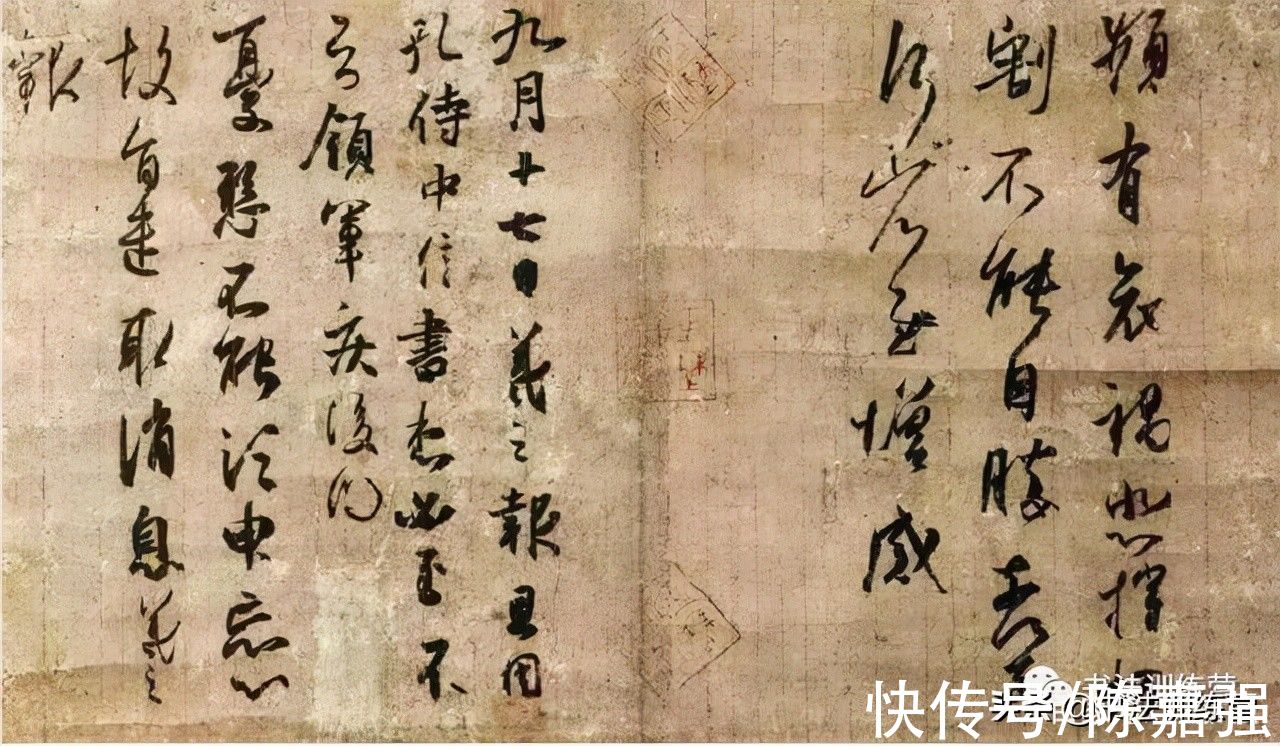 頻有哀禍悲摧切
割不能自勝奈何奈
何省慰增感
九月十七日羲之報且因
孔侍中信書想必至不
知領軍疾後問
憂懸不能須臾忘心
故旨遣取消息羲之
報
书法训练营
快传号/陈嘉强